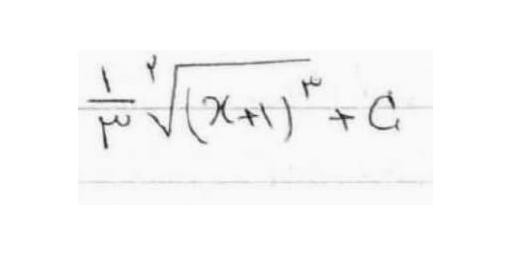 \frac{۱}{۳} \sqrt[۲]{(x+۱)^۳} + C